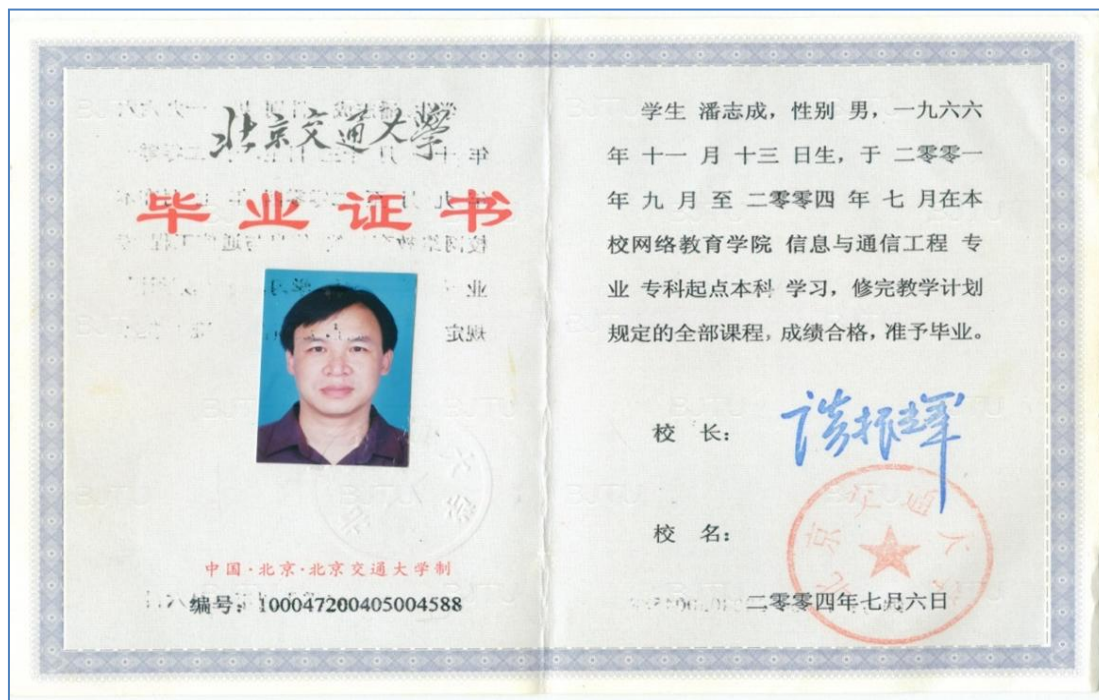 北京交通大学
毕业证书
中国·北京·北京交通大学制
编号：100047200405004588
学生 潘志成，性别 男，一九六六
年 十一 月 十三 日生，于 二零零一
年 九 月 至 二零零四 年 七 月在本
校网络教育学院 信息与通信工程 专
业 专科起点本科 学习，修完教学计划
规定的全部课程，成绩合格，准予毕业。
校 长：
谈振辉
校 名：
北京交通大学
二零零四年七月六日